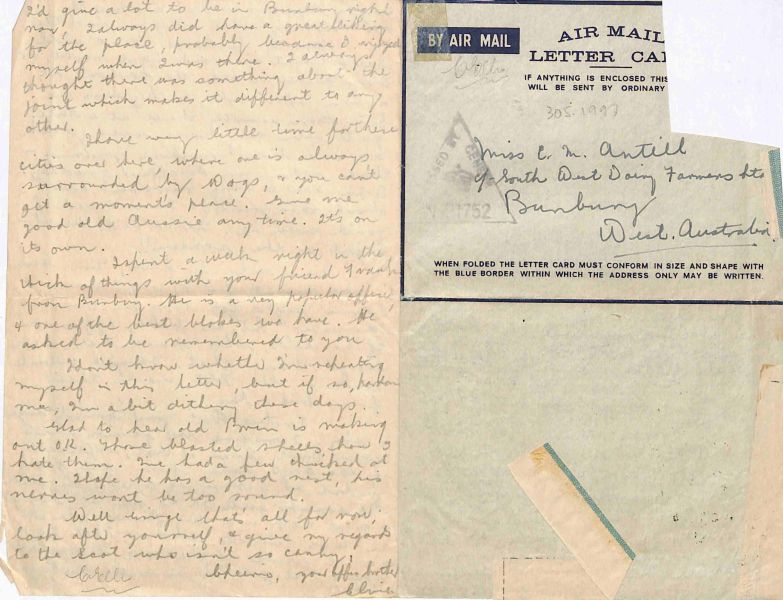 I'd give a lot to be in Bunbury right
now, I always did have a great liking
for the place, probably because I enjoyed
myself when I was there. I always
thought there was something about the
joint which makes it different to any
other.
I have very little time for these
cities over here, where one is always
surrounded by Wogs, & you can't
get a moment's peace. Give me
good old Aussie any time. It's on
its own.
I spent a week right in the
thick of things with your friend
from Bunbury. He is a very popular officer,
& one of the best blokes we have. He
asked to be remembered to you
I don't know whether I'm repeating
myself in this letter, but if so, pardon
me, I'm a bit dithery these days.
Glad to hear old is making
out O.K. Those blasted shells, how I
hate them. I've had a few chucked at
me. Hope he has a good rest, his
nerves wont be too sound.
Well that's all for now,
look after yourself, & give my regards
to the Scot who isn't so canny.
Cheerio, your affec brother
BY AIR MAIL
AIR MAIL
LETTER CA
IF ANYTHING IS ENCLOSED THIS
WILL BE SENT BY ORDINARY
305.1997
1752
Miss C. M. Antill
c/- South West Dairy Farmers Ltd
Bunbury
West. Australia.
WHEN FOLDED THE LETTER CARD MUST CONFORM IN SIZE AND SHAPE WITH
THE BLUE BORDER WITHIN WHICH THE ADDRESS ONLY MAY BE WRITTEN.